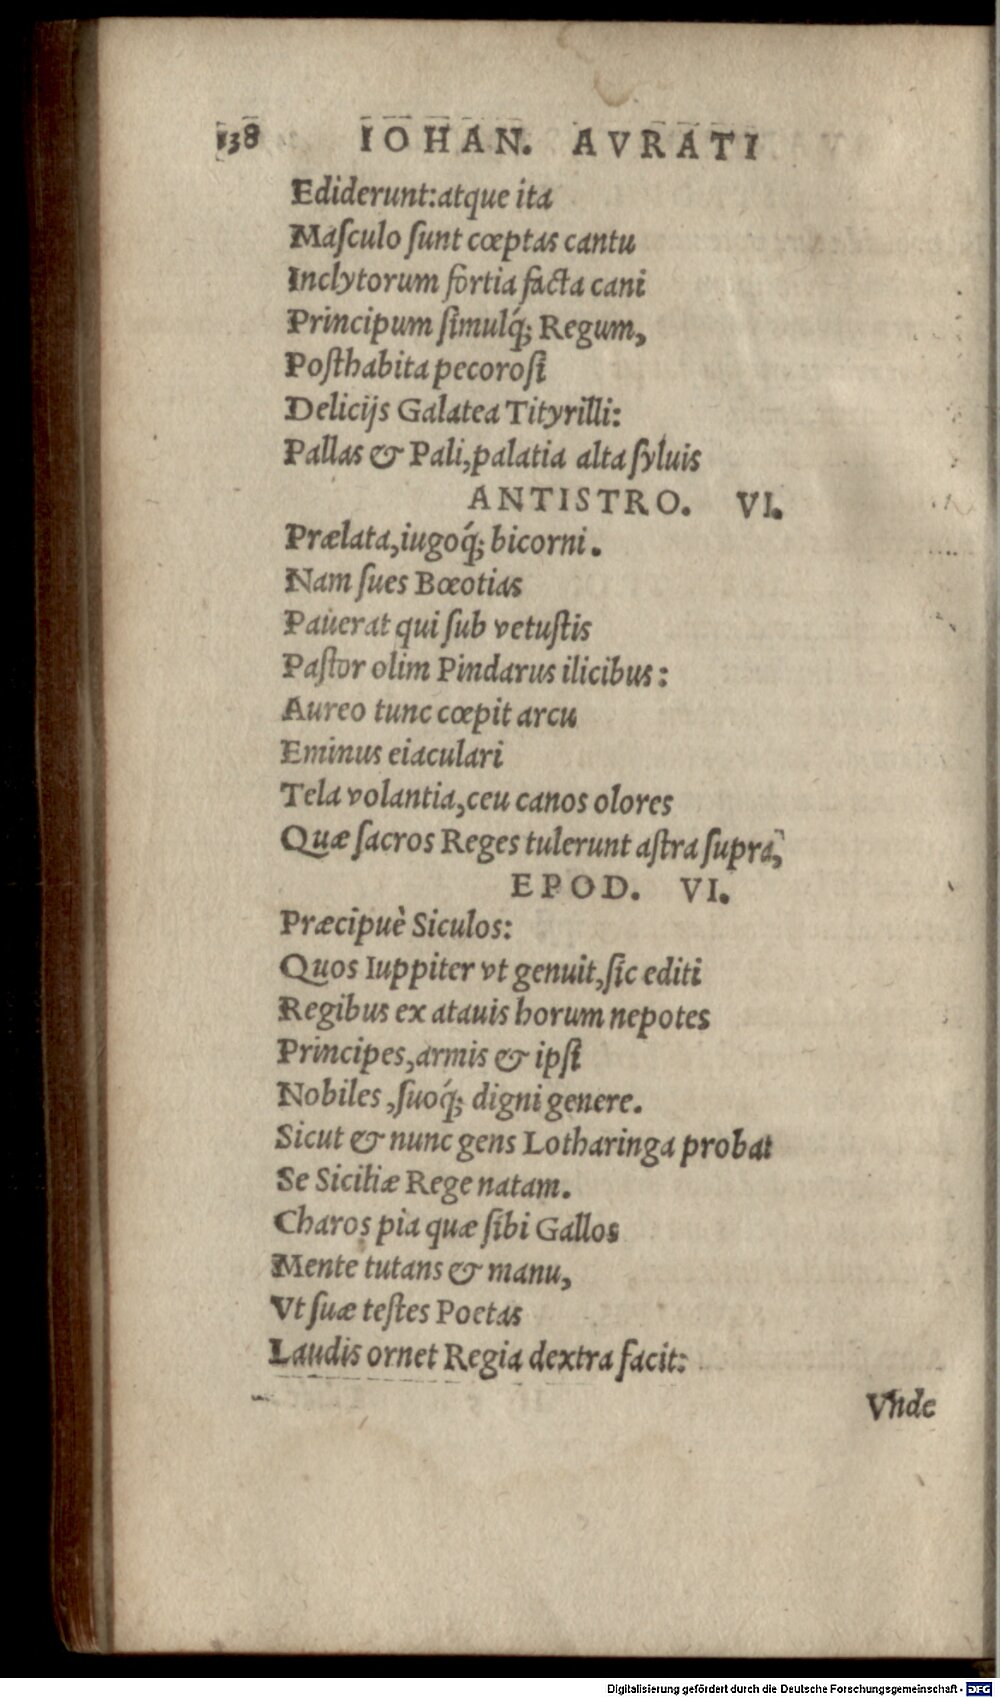 138 IOHAN. AVRATI
Ediderunt: atque ita
Maſculo ſunt cœptas cantu
Inclytorum fortia facta cani
Principum ſimulq́; Regum,
Poſthabita pecoroſi
Delicijs Galatea Tityrilli:
Pallas & Pali, palatia alta ſyluis
ANTISTRO. VI.
Prælata, iugoq́; bicorni.
Nam ſues Bœotias
Pauerat qui ſub vetuſtis
Paſtor olim Pindarus ilicibus:
Aureo tunc cœpit arcu
Eminus eiaculari
Tela volantia, ceu canos olores
Quæ ſacros Reges tulerunt aſtra ſuprà,
EPOD. VI.
Præcipuè Siculos:
Quos Iuppiter vt genuit, ſic editi
Regibus ex atauis horum nepotes
Principes, armis & ipſi
Nobiles, ſuoq́; digni genere.
Sicut & nunc gens Lotharinga probat
Se Siciliæ Rege natam.
Charos pia quæ ſibi Gallos
Mente tutans & manu,
Vt ſuæ teſtes Poetas
Laudis ornet Regia dextra facit:
Vnde
Digitalisierung gefördert durch die Deutsche Forschungsgemeinschaft - DFG